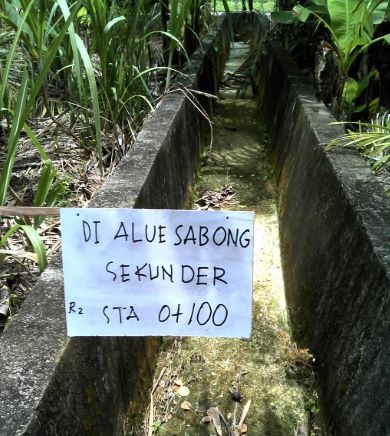 DI ALUE SABONG
SEKUNDER
R2 STA 0+100